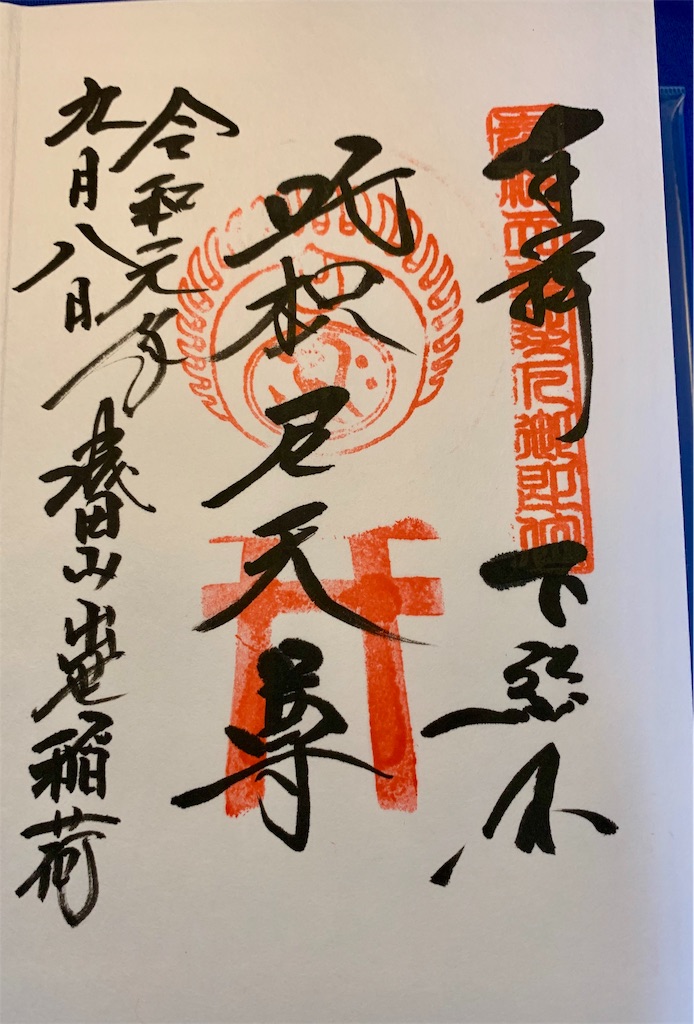 奉拝 下総
吒枳尼天尊
令和元年
九月八日
成田山出世稲荷